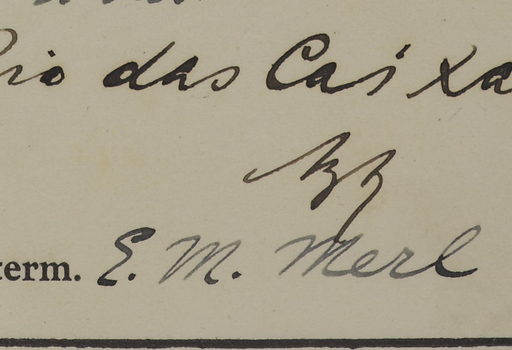 Rio das Caixa
term. E. M. Merl